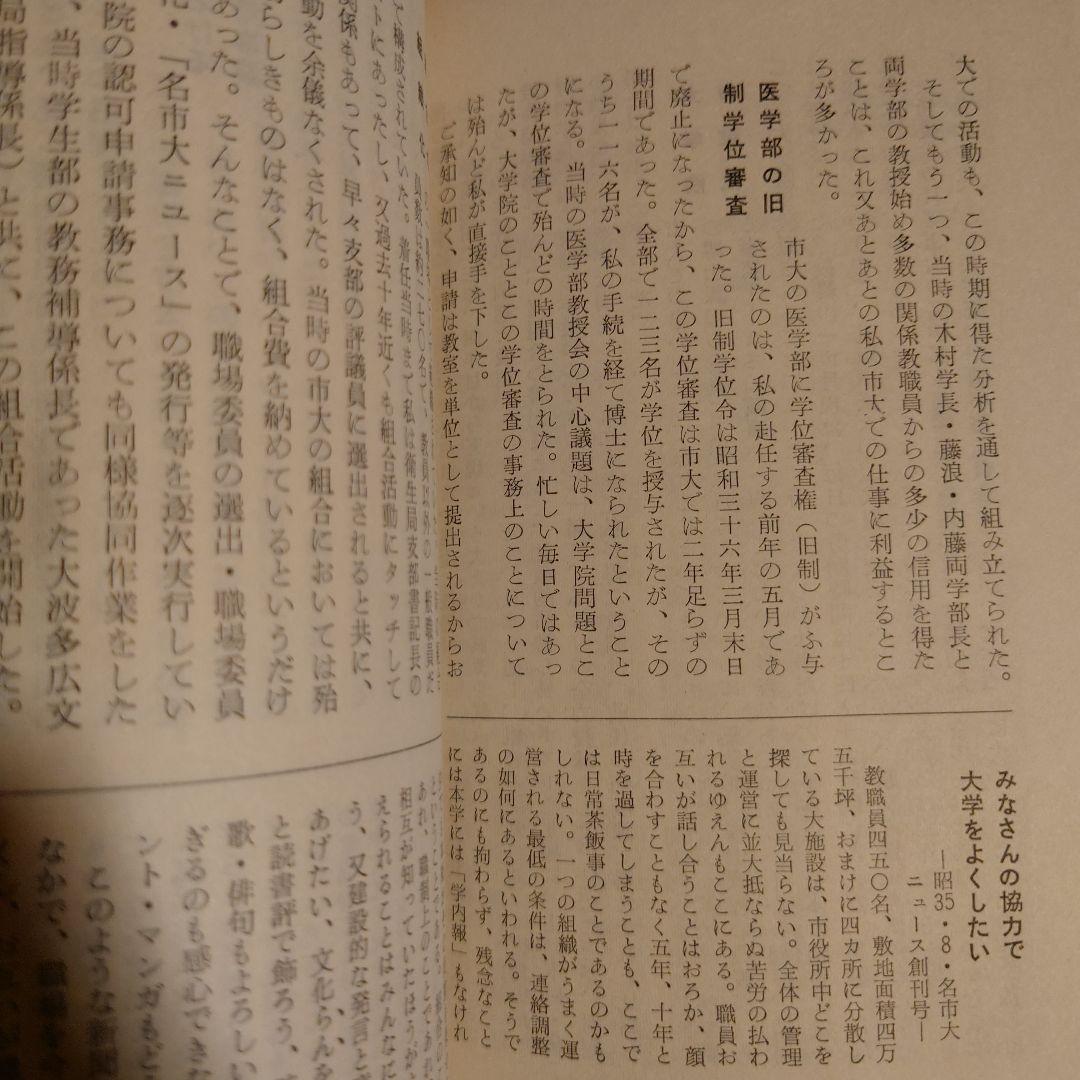 大での活動も、この時期に得た分析を通して組み立てられた。
そしてもう一つ、当時の木村学長・藤浪・内藤両学部長と
両学部の教授始め多数の関係教職員からの多少の信用を得た
ことは、これ又あとあとの私の市大での仕事に利益するとこ
ろが多かった。
医学部の旧
制学位審査
市大の医学部に学位審査権（旧制）がふ与
されたのは、私の赴任する前年の五月であ
った。旧制学位令は昭和三十六年三月末日
で廃止になったから、この学位審査は市大では二年足らずの
期間であった。全部で一二三名が学位を授与されたが、その
うち一一六名が、私の手続を経て博士になられたということ
になる。当時の医学部教授会の中心議題は、大学院問題とこ
の学位審査で殆んどの時間をとられた。忙しい毎日ではあっ
たが、大学院のこととこの学位審査の事務上のことについて
は殆んど私が直接手を下した。
ご承知の如く、申請は教室を単位として提出されるからお
みなさんの協力で
大学をよくしたい
―昭35・8・名市大
ニュース創刊号―
教職員四五〇名、敷地面積四万
五千坪、おまけに四カ所に分散し
ている大施設は、市役所中どこを
探しても見当らない。全体の管理
と運営に並大抵ならぬ苦労の払わ
れるゆえんもここにある。職員お
互いが話し合うことはおろか、顔
を合わすこともなく五年、十年と
時を過してしまうことも、ここで
は日常茶飯事のことであるのかも
しれない。一つの組織がうまく運
営される最低の条件は、連絡調整
の如何にあるといわれる。そうで
あるのにも拘わらず、残念なこと
には本学には「学内報」もなけれ
で構成されていた。着任当時まで私は衛生局支部書記長の
ートにあったし、又過去十年近くも組合活動にタッチして
関係もあって、早々支部の評議員に選出されると共に、
動を余儀なくされた。当時の市大の組合においては殆
らしきものはなく、組合費を納めているというだけ
あった。そんなことで、職場委員の選出・職場委員
・「名市大ニュース」の発行等を逐次実行してい
院の認可申請事務についても同様協同作業をした
、当時学生部の教務補導係長であった大波多広文
局指導係長）と共に、この組合活動を開始した。
相互が知っていたほうが
えられることはみんなに
う、又建設的な発言と
あげたい、文化らんを
と読書評で飾ろう、
歌・俳句もよろしい
ぎるのも感心できな
ント・マンガもど
このような新聞
なかで、職場